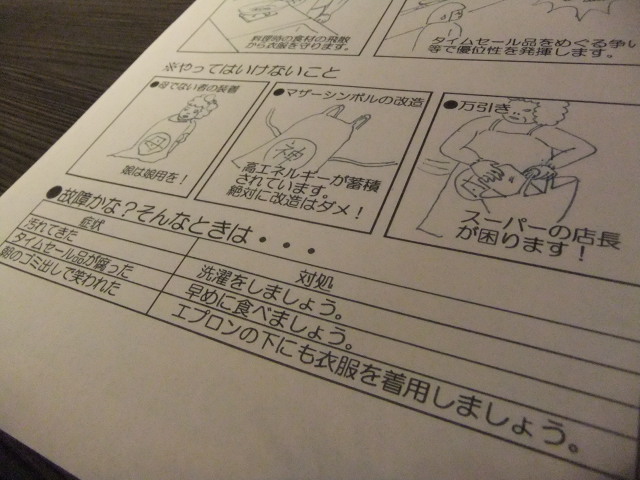 料理時の食材の飛散
から衣服を守ります。
タイムセール品をめぐる争い
等で優位性を発揮します。
※やってはいけないこと
●母でない者の装着
母
娘は娘用を！
●マザーシンボルの改造
神
高エネルギーが蓄積
されています。
絶対に改造はダメ！
●万引き
スーパーの店長
が困ります！
●故障かな？そんなときは・・・
症状
対処
汚れてきた
洗濯をしましょう。
タイムセール品が腐った
早めに食べましょう。
朝のゴミ出しで笑われた
エプロンの下にも衣服を着用しましょう。